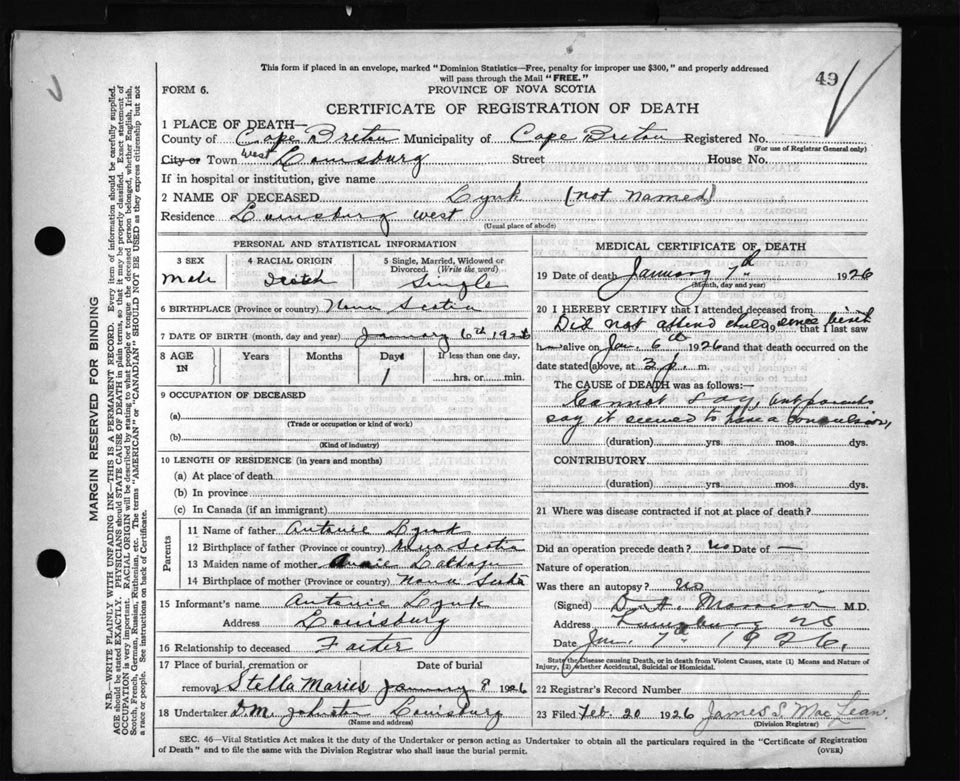 This form if placed in an envelope, marked "Dominion Statistics—Free, penalty for improper use $300," and properly addressed
will pass through the Mail "FREE."
49
FORM 6.
PROVINCE OF NOVA SCOTIA
CERTIFICATE OF REGISTRATION OF DEATH
1 PLACE OF DEATH—
County of Cape Breton Municipality of Cape Breton Registered No.
(For use of Registrar General only)
City or Town West Louisburg Street House No.
If in hospital or institution, give name
2 NAME OF DECEASED Lynk (not named)
Residence Louisburg west
(Usual place of abode)
PERSONAL AND STATISTICAL INFORMATION
3 SEX
Male
4 RACIAL ORIGIN
Scotch
5 Single, Married, Widowed or
Divorced. (Write the word)
Single
6 BIRTHPLACE (Province or country) Nova Scotia
7 DATE OF BIRTH (month, day and year) January 6th 1926
8 AGE
IN
Years
Months
Days
1
If less than one day,
hrs. or min.
9 OCCUPATION OF DECEASED
(a)
(Trade or occupation or kind of work)
(b)
(Kind of industry)
10 LENGTH OF RESIDENCE (in years and months)
(a) At place of death
(b) In province
(c) In Canada (if an immigrant)
Parents
11 Name of father Lynk
12 Birthplace of father (Province or country) Nova Scotia
13 Maiden name of mother Annie
14 Birthplace of mother (Province or country) Nova Scotia
15 Informant's name Lynk
Address Louisburg
16 Relationship to deceased Father
17 Place of burial, cremation or
removal Stella Maries
Date of burial
January 8 1926
18 Undertaker D.M. Johnston Louisburg
(Name and address)
MEDICAL CERTIFICATE OF DEATH
19 Date of death January 7th 1926
(Month, day and year)
20 I HEREBY CERTIFY that I attended deceased from
Did not attend child, since birth
that I last saw
h alive on Jan. 6th 1926 and that death occurred on the
date stated above, at 3 p. m.
The CAUSE of DEATH was as follows:—
Cannot say, but parents
say it seemed to have a convulsion,
(duration) yrs. mos. dys.
CONTRIBUTORY
(duration) yrs. mos. dys.
21 Where was disease contracted if not at place of death?
Did an operation precede death? No Date of —
Nature of operation
Was there an autopsy? No
(Signed) M.D.
Address Louisburg NS
Date Jan. 7th 1926.
State the Disease causing Death, or in death from Violent Causes, state (1) Means and Nature of
Injury, (2) whether Accidental, Suicidal or Homicidal.
22 Registrar's Record Number
23 Filed Feb. 20 1926 James S. MacLean.
(Division Registrar)
SEC. 46—Vital Statistics Act makes it the duty of the Undertaker or person acting as Undertaker to obtain all the particulars required in the "Certificate of Registration
of Death" and to file the same with the Division Registrar who shall issue the burial permit.
(OVER)
MARGIN RESERVED FOR BINDING
N.B.—WRITE PLAINLY WITH UNFADING INK—THIS IS A PERMANENT RECORD. Every item of information should be carefully supplied.
AGE should be stated EXACTLY. PHYSICIANS should STATE CAUSE OF DEATH in plain terms, so that it may be properly classified. Exact statement of
OCCUPATION is very important. RACIAL ORIGIN will be described by stating to what people or tongue the deceased person belonged, whether English, Irish,
Scotch, French, German, Russian, Ruthenian, etc. The terms "AMERICAN" or "CANADIAN" SHOULD NOT BE USED as they express citizenship but not
a race or people. See instructions on back of Certificate.